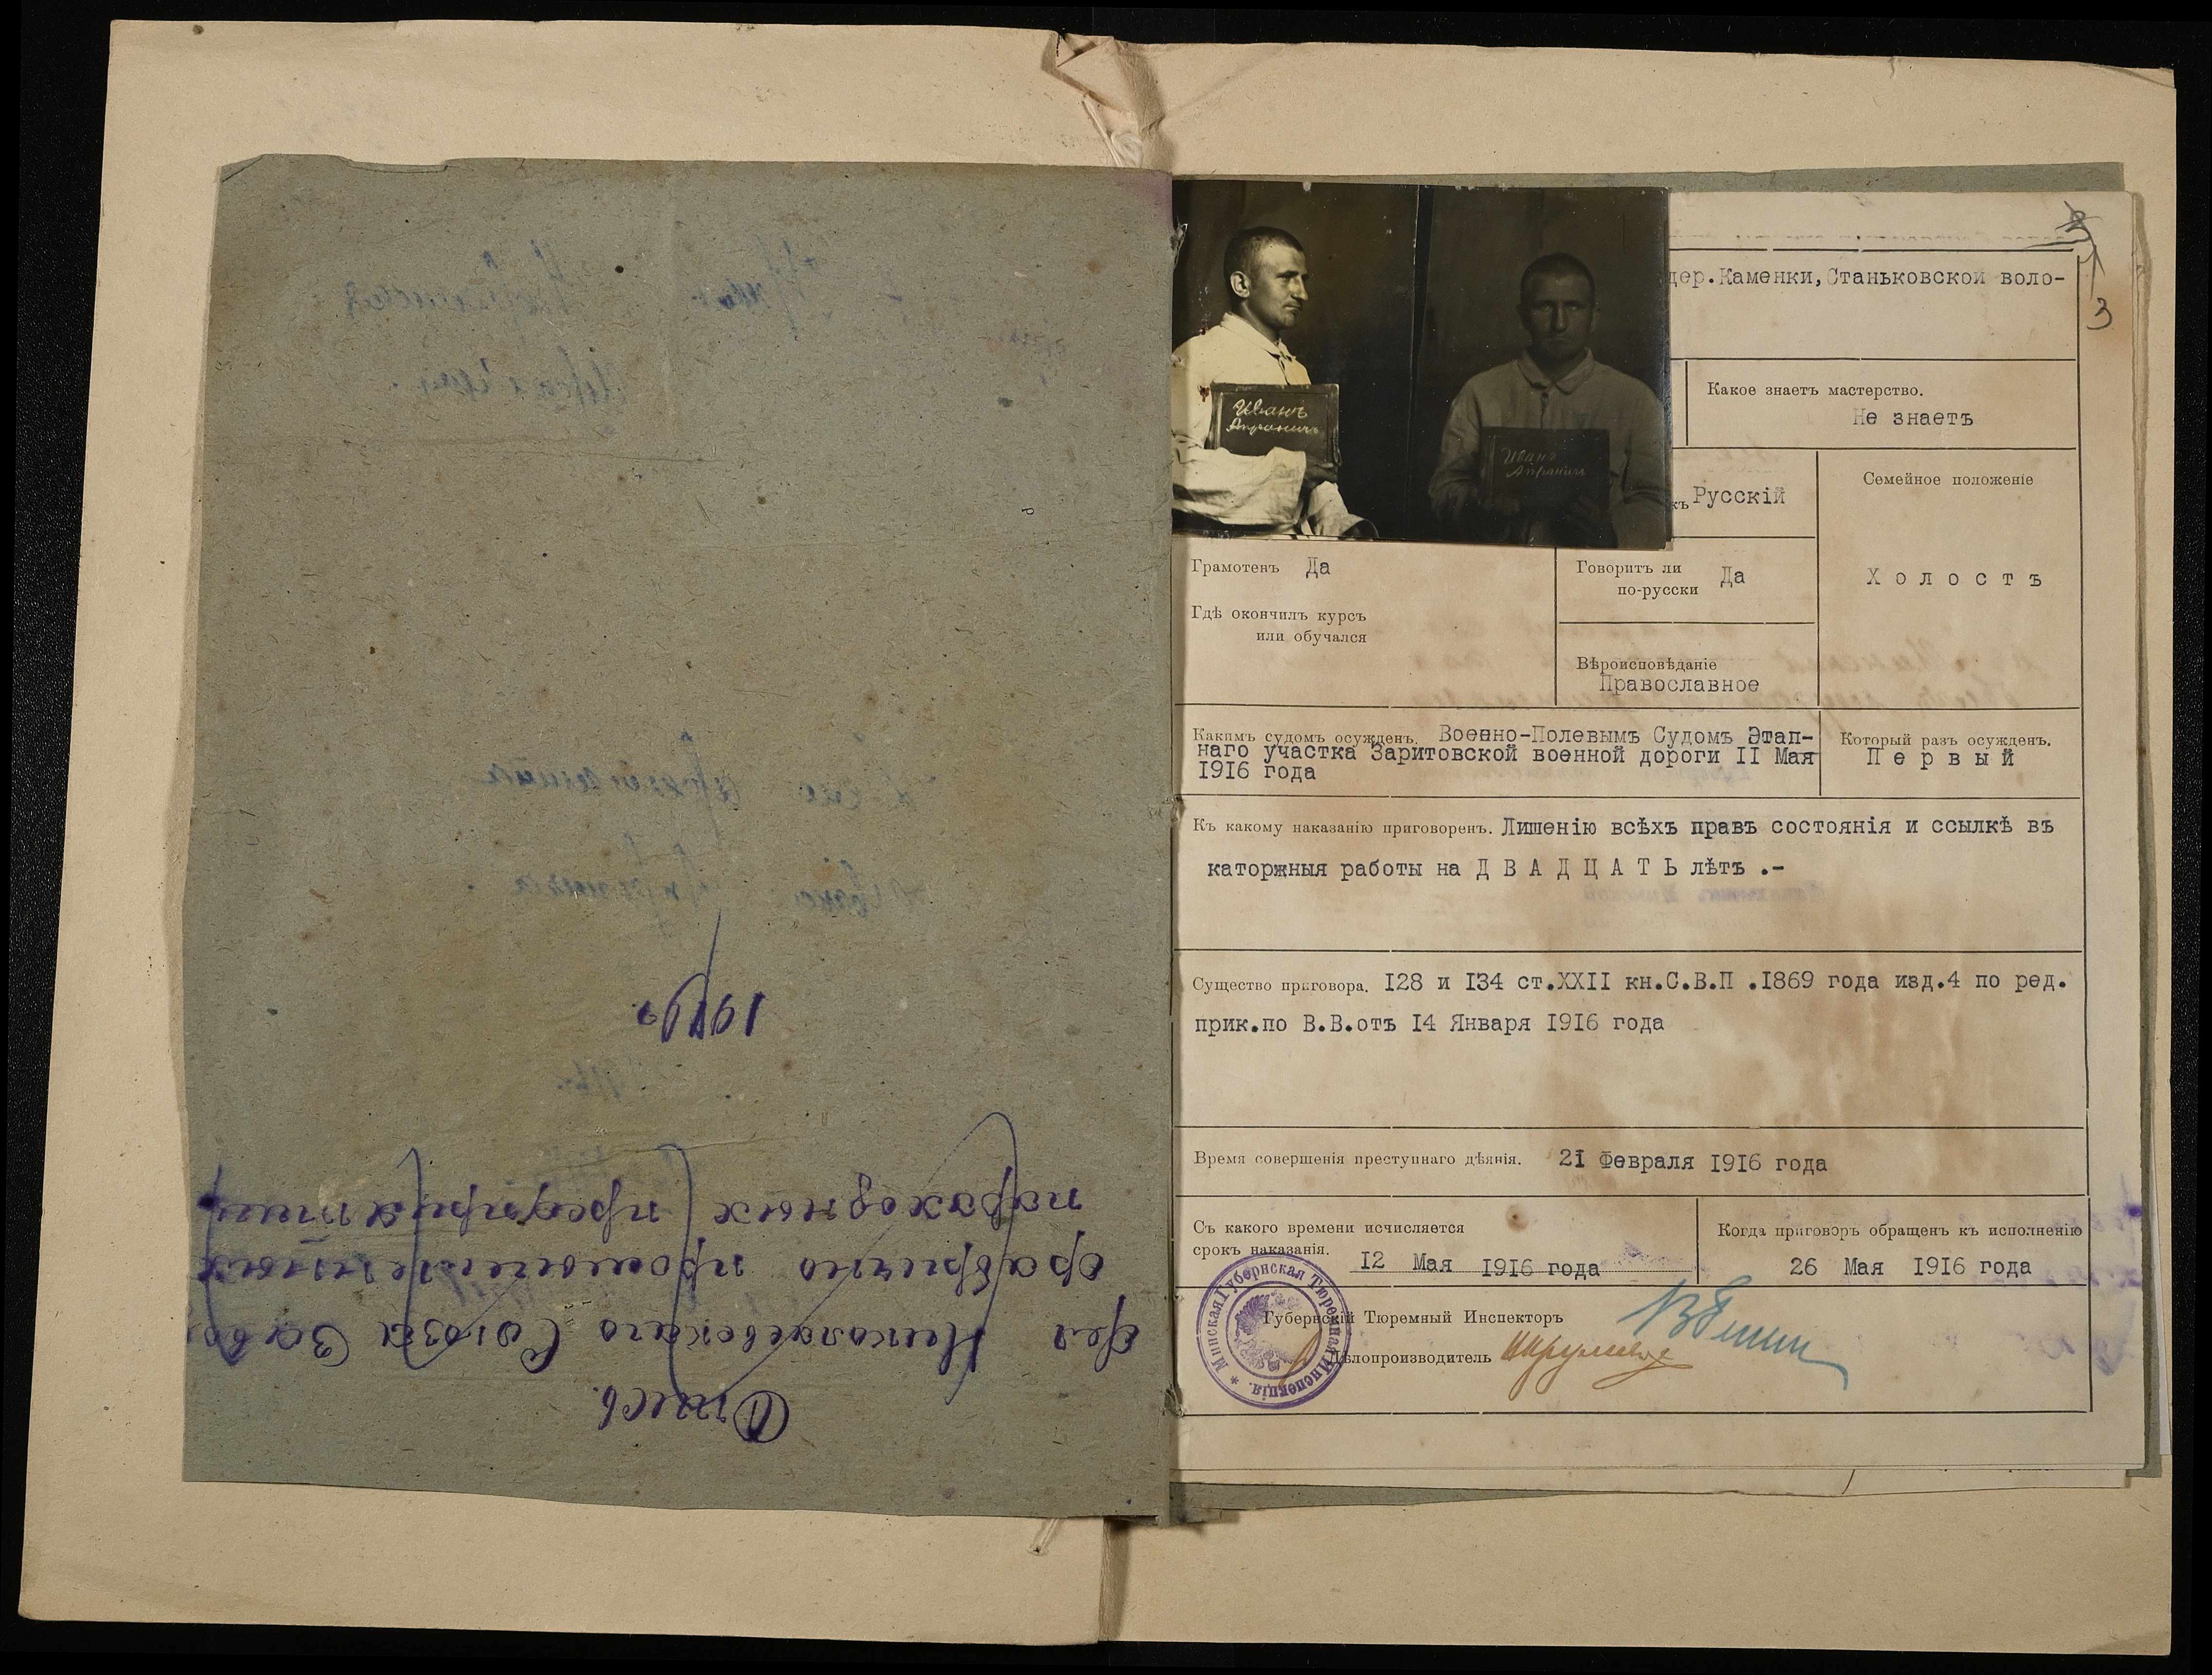 Опись
дел Николаевского Союза Заво
фабрично промышленных
пароходных предприятий
1919 г.
3
3
Иванъ
Апранич
Иванъ
Апранич
дер.Каменки,Станьковской воло-
Какое знаетъ мастерство.
Не знаетъ
къ Русскій
Семейное положеніе
Холостъ
Грамотенъ Да
Говоритъ ли
по-русски Да
Гдѣ окончилъ курсъ
или обучался
Вѣроисповѣданіе
Православное
Какимъ судомъ осужденъ. Военно-Полевымъ Судомъ Этап-
наго участка Заритовской военной дороги II Мая
1916 года
Который разъ осужденъ.
Первый
Къ какому наказанію приговоренъ. Лишенію всѣхъ правъ состоянія и ссылкѣ въ
каторжныя работы на ДВАДЦАТЬ лѣтъ .-
Существо приговора. 128 и 134 ст.XXII кн.С.В.П .1869 года изд.4 по ред.
прик.по В.В.отъ 14 Января 1916 года
Время совершенія преступнаго дѣянія. 21 Февраля 1916 года
Съ какого времени исчисляется
срокъ наказанія. 12 Мая 1916 года
Когда приговоръ обращенъ къ исполненію
26 Мая 1916 года
Губернскій Тюремный Инспекторъ
Дѣлопроизводитель
Минская Губернская Тюремная Инспекція.